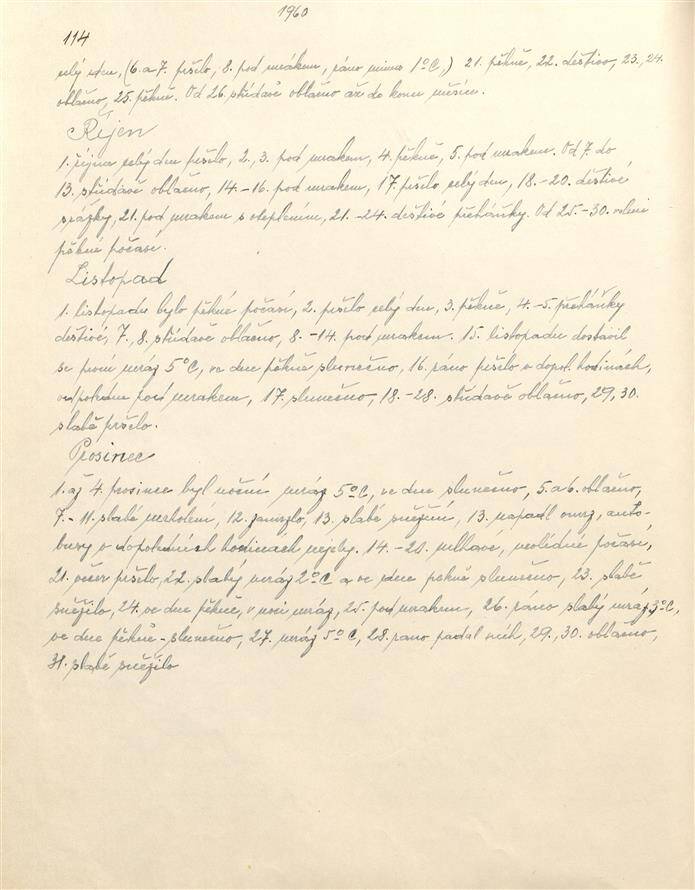 1960
114
celý den, (6. a 7. pršelo, 8. pod mrakem, ráno minus 1°C,) 21. pěkně, 22. deštivo, 23., 24.
oblačno, 25. pěkně. Od 26. střídavě oblačno až do konce měsíce.
Říjen
1. října celý den pršelo, 2., 3. pod mrakem, 4. pěkně, 5. pod mrakem. Od 7. do
13. střídavě oblačno, 14.-16. pod mrakem, 17. pršelo celý den, 18.-20. deštivé
srážky, 21. pod mrakem s oteplením, 21.-24. deštivé přeháňky. Od 25.-30. velmi
pěkné počasí.
Listopad
1. listopadu bylo pěkné počasí, 2. pršelo celý den, 3. pěkně, 4.-5. přeháňky
deštivé, 7., 8. střídavě oblačno, 8.-14. pod mrakem. 15. listopadu dostavil
se první mráz 5°C, ve dne pěkně slunečno, 16. ráno pršelo v dopol. hodinách,
odpoledne pod mrakem, 17. slunečno, 18.-28. střídavě oblačno, 29., 30.
slabě pršelo.
Prosinec
1. až 4. prosince byl noční mráz 5°C, ve dne slunečno, 5. a 6. oblačno,
7.-11. slabé mrholení, 12. zamrzlo, 13. slabé sněžení, 13. napadl, auto-
busy v dopoledních hodinách nejely. 14.-21. mlhavé, nevlídné počasí,
21. večer pršelo, 22. slabý mráz 2°C a ve dne pěkně slunečno, 23. slabě
sněžilo, 24. ve dne pěkně, v noci mráz, 25. pod mrakem, 26. ráno slabý mráz 3°C,
ve dne pěkně - slunečno, 27. mráz 5°C, 28. ráno padal sníh, 29., 30. oblačno,
31. slabě sněžilo